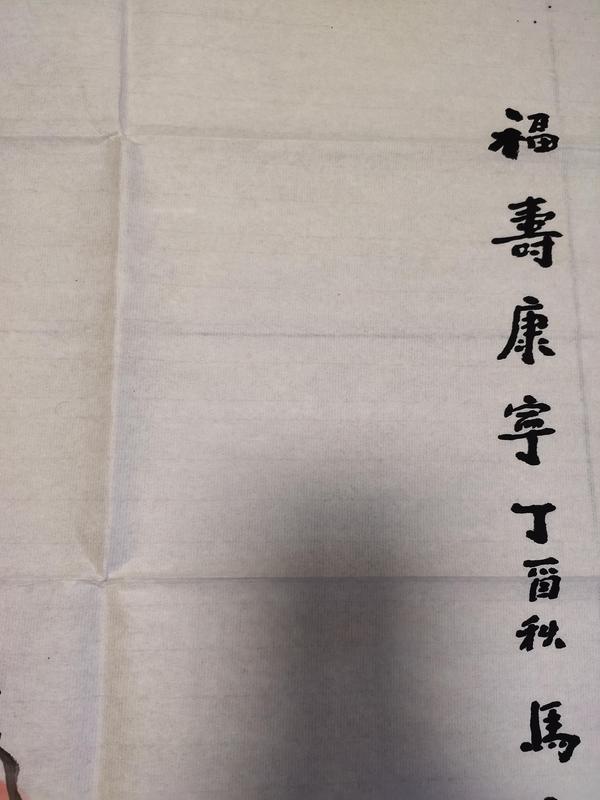 福壽康寧丁酉秋馬